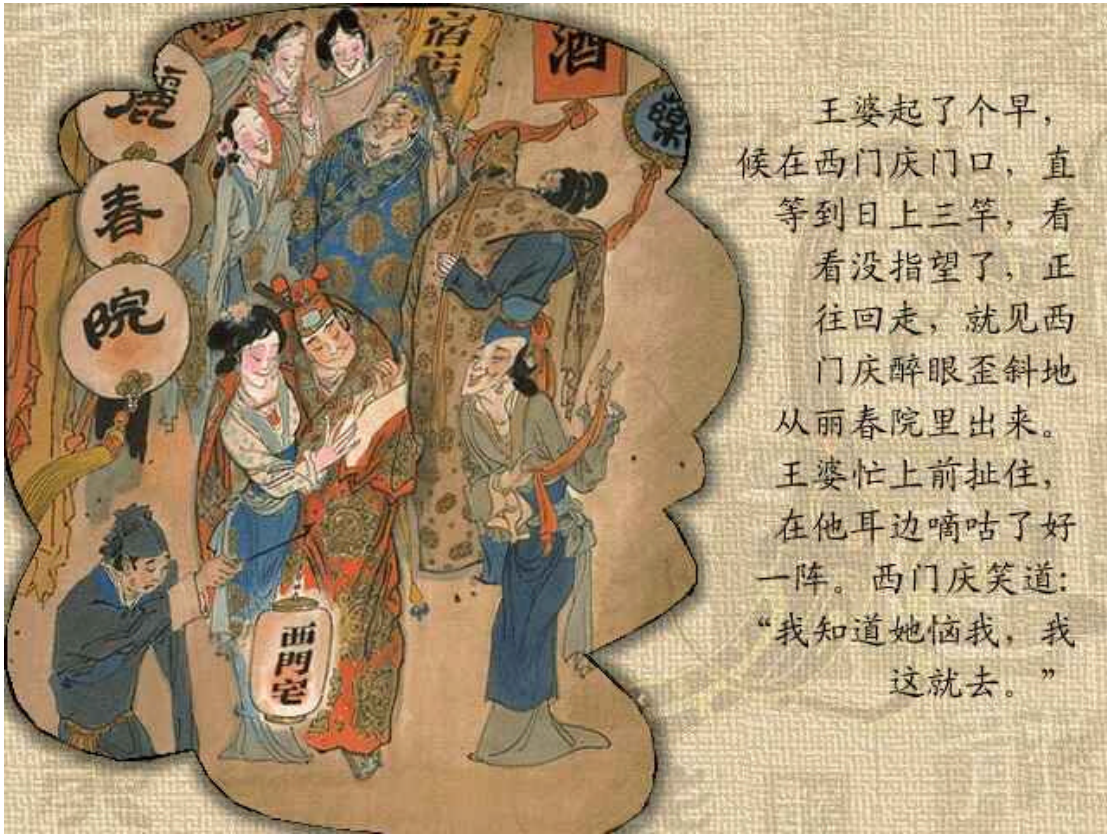 麗
春
院
宿店
酒
西門宅
王婆起了个早，
候在西门庆门口，直
等到日上三竿，看
看没指望了，正
往回走，就见西
门庆醉眼歪斜地
从丽春院里出来。
王婆忙上前扯住，
在他耳边嘀咕了好
一阵。西门庆笑道：
“我知道她恼我，我
这就去。”